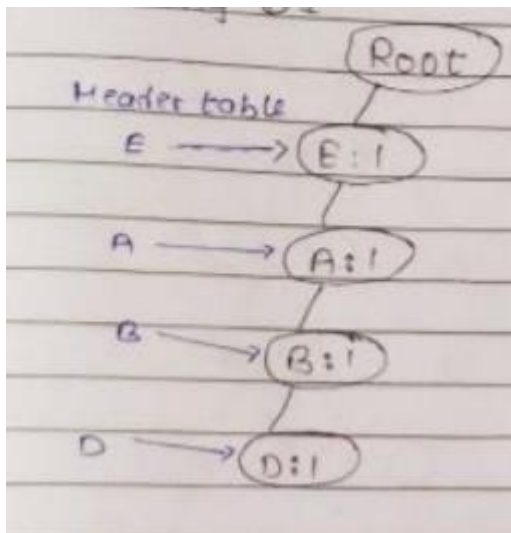 Root
Header table
E E:1
A A:1
B B:1
D D:1